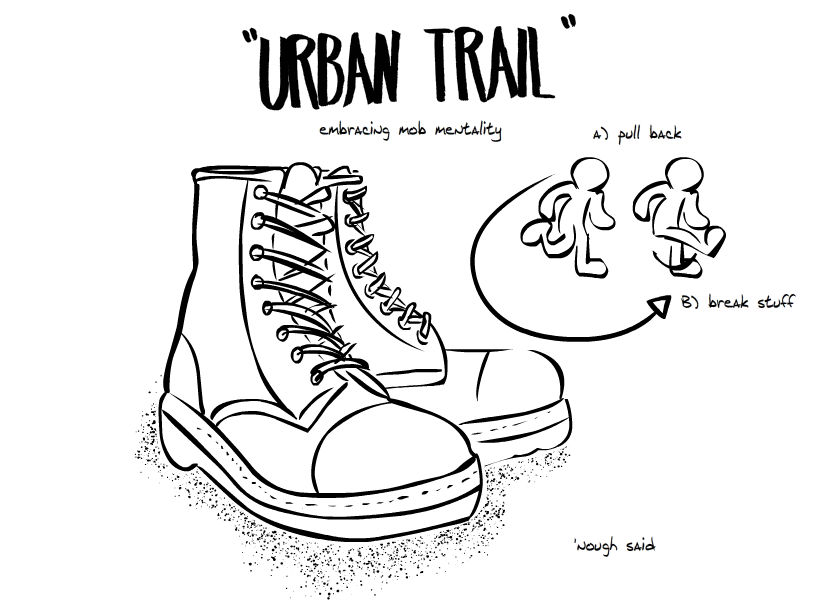 "URBAN TRAIL"
embracing mob mentality
A) pull back
B) break stuff
'nough said